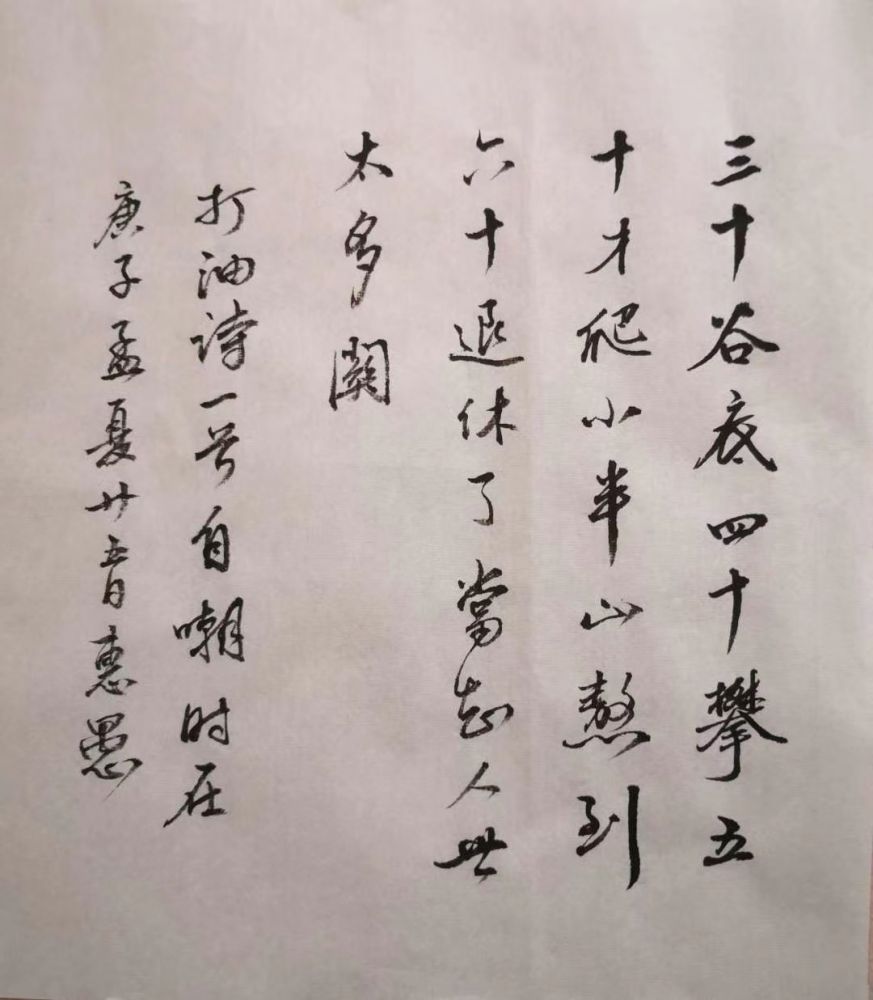 三十谷底四十攀五
十才爬小半山熬到
六十退休了當知人世
太多關
打油诗一首自嘲时在
庚子孟夏廿五日惠愚